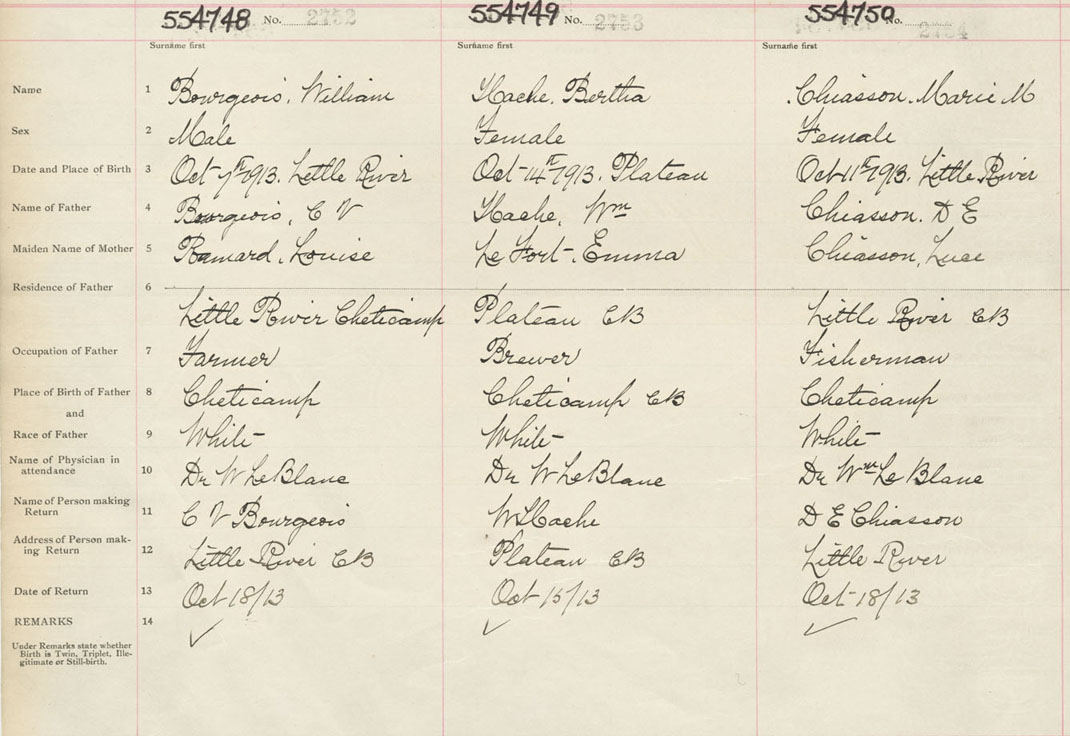 554748 No. 2752 554749 No. 2753 554750 No. 2754
Surname first Surname first Surname first
Name 1 Bourgeois, William Hache, Bertha Chiasson, Marie M
Sex 2 Male Female Female
Date and Place of Birth 3 Oct 7th 1913. Little River Oct 14th 1913. Plateau Oct 11th 1913. Little River
Name of Father 4 Bourgeois, C V Hache, Wm Chiasson. D E
Maiden Name of Mother 5 Ramard, Louise Le Fort, Emma Chiasson, Luce
Residence of Father 6
Little River Cheticamp Plateau CB Little River CB
Occupation of Father 7 Farmer Brewer Fisherman
Place of Birth of Father 8 Cheticamp Cheticamp CB Cheticamp
and
Race of Father 9 White White White
Name of Physician in
attendance 10 Dr W LeBlanc Dr W LeBlanc Dr Wm Le Blanc
Name of Person making
Return 11 C V Bourgeois W Hache D E Chiasson
Address of Person mak-
ing Return 12 Little River CB Plateau CB Little River
Date of Return 13 Oct 18/13 Oct 15/13 Oct 18/13
REMARKS 14
Under Remarks state whether
Birth is Twin, Triplet, Ille-
gitimate or Still-birth.